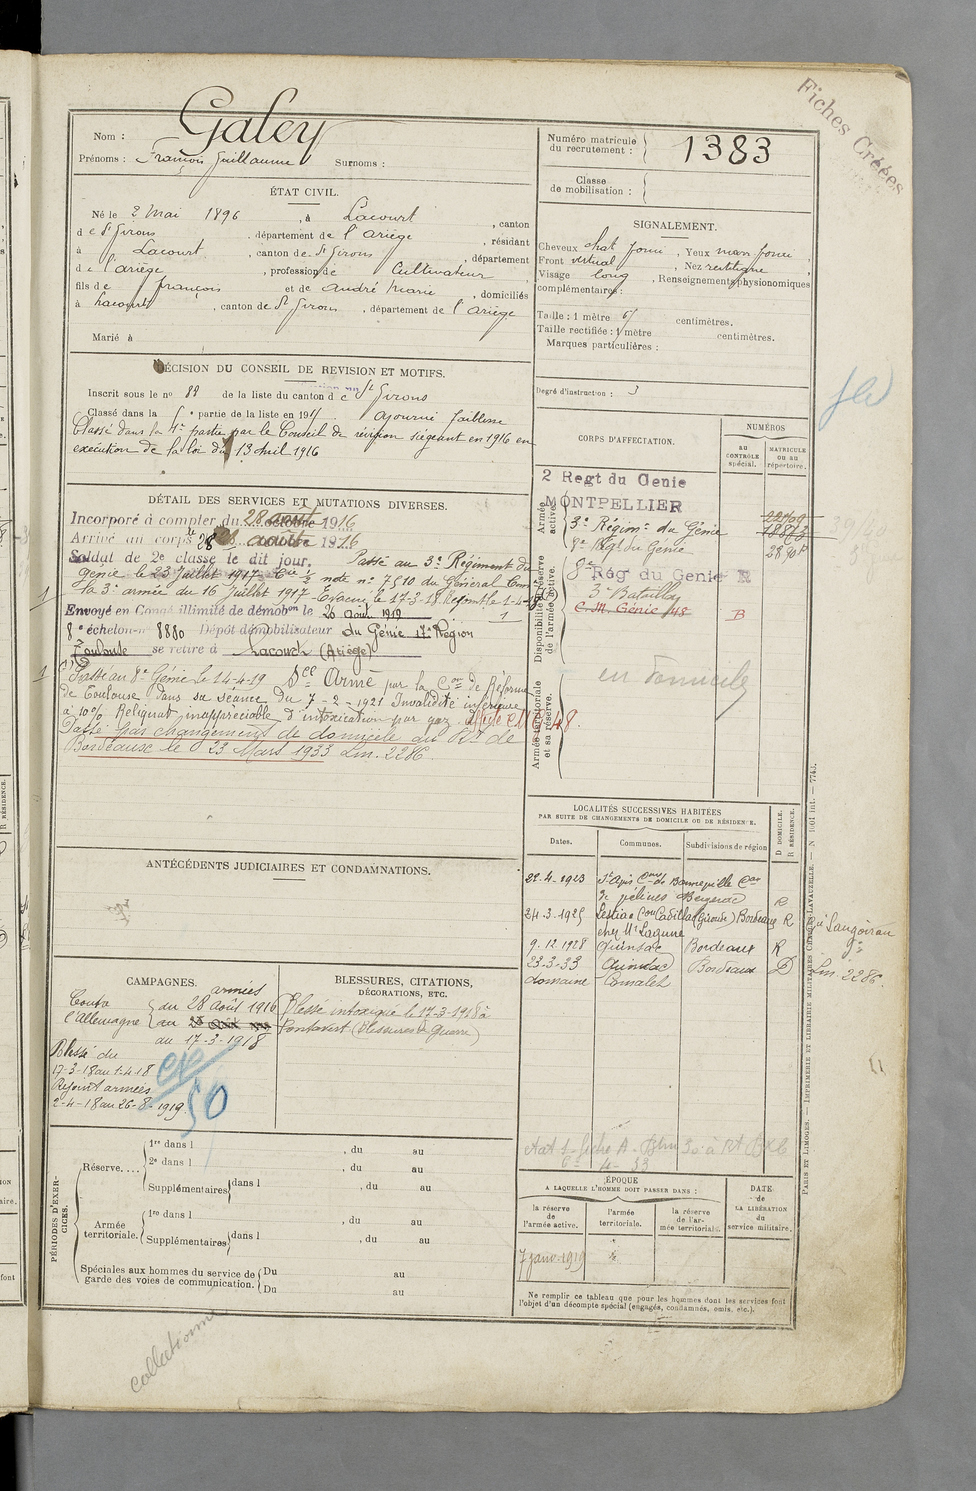 Fiches Créées
Nom : Galey
Prénoms : François Guillaume Surnoms :
Numéro matricule du recrutement : 1383
Classe de mobilisation :
ÉTAT CIVIL.
Né le 2 Mai 1896, à Lacourt, canton
de St Girons, département de l'Ariège, résidant
à Lacourt, canton de St Girons, département
de l'Ariège, profession de Cultivateur
fils de François et de André Marie, domiciliés
à Lacourt, canton de St Girons, département de l'Ariège
Marié à
SIGNALEMENT.
Cheveux chat foncé, Yeux marr foncé,
Front vertical, Nez rectiligne,
Visage long, Renseignements physionomiques
complémentaires :
Taille : 1 mètre 67 centimètres.
Taille rectifiée : 1 mètre centimètres.
Marques particulières :
Degré d'instruction : 3
DÉCISION DU CONSEIL DE REVISION ET MOTIFS.
Inscrit sous le no 82 de la liste du canton de St Girons
Classé dans la 5e partie de la liste en 1915 Ajourné faiblesse
Classé dans la 1ère partie par le Conseil de révision siégeant en 1916 en
exécution de la loi du 13 Avril 1916
CORPS D'AFFECTATION.
NUMÉROS
AU CONTRÔLE spécial.
MATRICULE OU AU répertoire.
Armée active.
2 Regt du Genie
MONTPELLIER
3e Régimt du Génie
8e Rgt du Génie
Disponibilité et réserve de l'armée active.
8e Rég du Genie
3e Bataillon
C.M. Génie 48 B
Armée territoriale et sa réserve.
en domicile
DÉTAIL DES SERVICES ET MUTATIONS DIVERSES.
Incorporé à compter du 28 août 1916
Arrivé au corps le 28 1916
Soldat de 2e classe le dit jour. Passé au 3e Régiment du
génie le 23 Juillet 1917 note no 7510 du Général Comt
la 3e armée du 16 Juillet 1917 - Evacué le 17-3-18 Rejoint le 1-4-18
Envoyé en Congé illimité de démobon le 26 août 1919
8e échelon no 8880 Dépôt démobilisateur du Génie 17e Région
Toulouse se retire à Lacourt (Ariège)
Passé au 8e Génie le 14-4-19 Sce Armé par la Con de Réforme
de Toulouse dans sa séance du 7-2-1921 Invalidité inférieure
à 10% Reliquat inappréciable d'intoxication par gaz.
Passé par changement de domicile au Rt de
Bordeaux le 23 Mars 1933 Lm. 2286.
LOCALITÉS SUCCESSIVES HABITÉES
PAR SUITE DE CHANGEMENTS DE DOMICILE OU DE RÉSIDENCE.
Dates. Communes. Subdivisions de région D DOMICILE. R RÉSIDENCE.
22-4-1923 St Apis Cne de Bonneville Con
de Vélines Bergerac R
24-3-1925 Lestiac Con Cadillac (Gironde) Bordeaux R
chez Mr Lagune
9.12.1928 Quinsac Bordeaux R
23-3-33 Quinsac Bordeaux D Lm. 2286.
domaine Comalet
ANTÉCÉDENTS JUDICIAIRES ET CONDAMNATIONS.
CAMPAGNES.
Contre l'Allemagne
armées
du 28 Août 1916
au 17-3-1918
Blessé du
17-3-18 au 1-4-18
Rejoint armées
2-4-18 au 26-8-1919.
50
BLESSURES, CITATIONS,
DÉCORATIONS, ETC.
Blessé intoxiqué le 17-3-1918 à
Pontavert (Blessures de Guerre)
PÉRIODES D'EXERCICES.
Réserve....
1re dans l , du au
2e dans l , du au
Supplémentaires dans l , du au
Armée territoriale.
1re dans l , du au
Supplémentaires dans l , du au
Spéciales aux hommes du service de garde des voies de communication.
Du au
Du au
ÉPOQUE
A LAQUELLE L'HOMME DOIT PASSER DANS :
la réserve de l'armée active.
l'armée territoriale.
la réserve de l'armée territoriale.
DATE de LA LIBÉRATION du service militaire.
7 janv. 1919
Ne remplir ce tableau que pour les hommes dont les services font
l'objet d'un décompte spécial (engagés, condamnés, omis, etc.).
PARIS ET LIMOGES. — IMPRIMERIE ET LIBRAIRIE MILITAIRES CHARLES-LAVAUZELLE. —
collationné